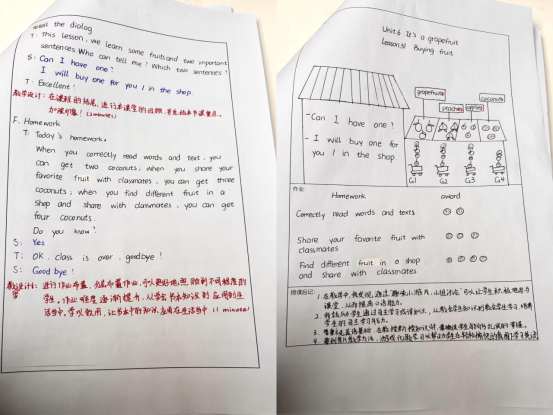 retell the dialog
T: This lesson, we learn some fruits and two important
sentences. Who can tell me? Which two sentences?
S: Can I have one?
I will buy one for you / in the shop.
T: Excellent!
教学设计: 在课程的结尾, 进行本堂课的回顾, 并总结本节课重点。
加深印象! (2 minutes)
F. Homework
T: Today's homework,
When you correctly read words and text, you
can get two coconuts; when you share your
favorite fruit with classmates, you can get three
coconuts; when you find different fruit in a
shop and share with classmates, you can get
four coconuts.
Do you know?
S: Yes
T: OK, class is over, goodbye!
S: Good bye!
教学设计: 进行作业布置, 分层布置作业, 可以更好地照顾到不同程度的
学生。作业难度逐渐提升, 从学会书本知识到应用到生
活当中, 学以致用, 让书本中的知识应用在生活当中 (1 minute)
Unit 6 It's a grapefruit
Lesson 31 Buying fruit
grapefruits
peaches
apples
coconuts
- Can I have one?
- I will buy one for
you / in the shop.
G1 G2 G3 G4
作业:
Homework award
Correctly read words and texts
Share your favorite fruit with
classmates
Find different fruit in a shop
and share with classmates
授课后记:
1. 在教学中, 我发现, 通过"趣味小游戏, 小组讨论"可以让学生积极地参与
课堂, 从而提高口语能力。
2.
学生的自主学习能力。
3.
4.